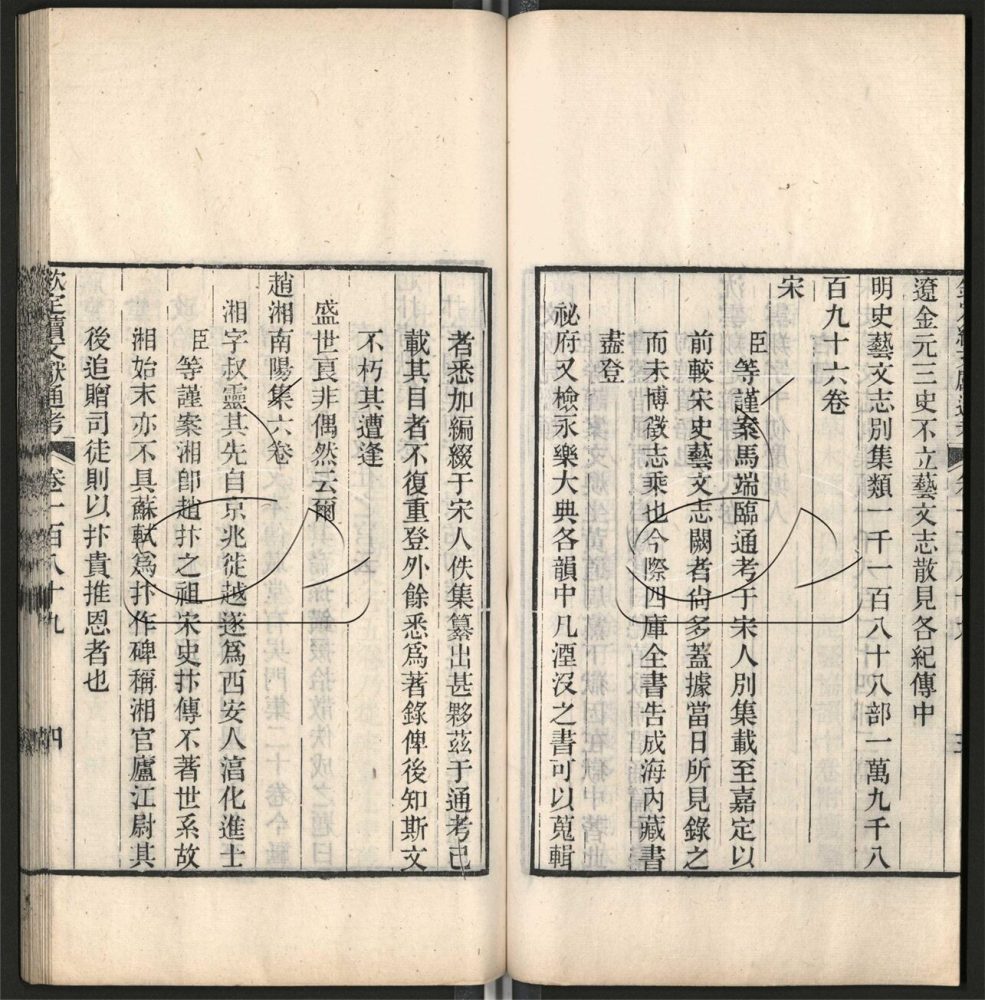 遼金元三史不立藝文志散見各紀傳中
明史藝文志别集類一千一百八十八部一萬九千八
百九十六卷
宋
臣等謹案馬端臨通考于宋人别集載至嘉定以
前較宋史藝文志闕者尙多蓋據當日所見錄之
而未博徵志乘也今際四庫全書告成海內藏書
盡登
祕府又檢永樂大典各韻中凡湮沒之書可以蒐輯
者悉加編綴于宋人佚集纂出甚夥茲于通考已
載其目者不復重登外餘悉爲著錄俾後知斯文
不朽其遭逢
盛世良非偶然云爾
趙湘南陽集六卷
湘字叔靈其先自京兆徙越遂爲西安人淳化進士
臣等謹案湘卽趙抃之祖宋史抃傳不著世系故
湘始末亦不具蘇軾爲抃作碑稱湘官廬江尉其
後追贈司徒則以抃貴推恩者也
欽定續文獻通考 卷一百八十九 四